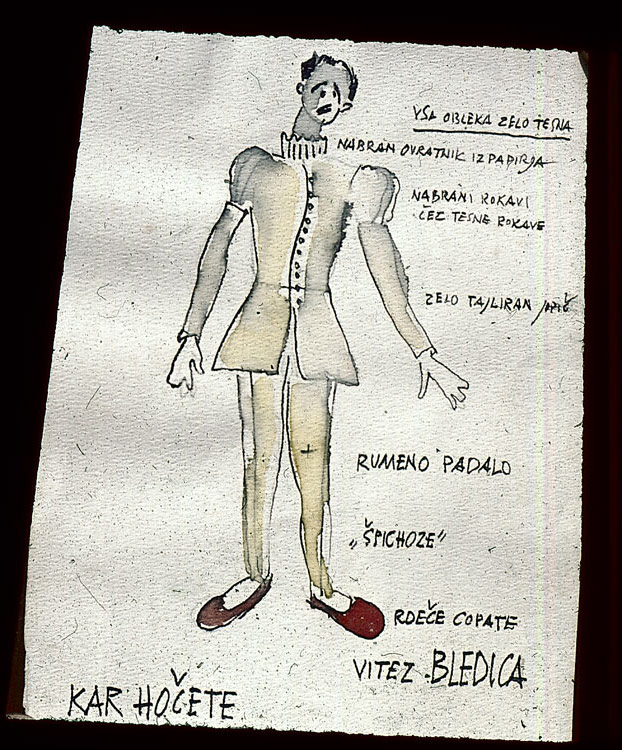 VSA OBLEKA ZELO TESNA
NABRAN OVRATNIK IZ PAPIRJA
NABRANI ROKAVI
ČEZ TESNE ROKAVE
ZELO TAJLIRAN JOPIČ
RUMENO PADALO
„ŠPICHOZE"
RDEČE COPATE
VITEZ BLEDICA
KAR HOČETE